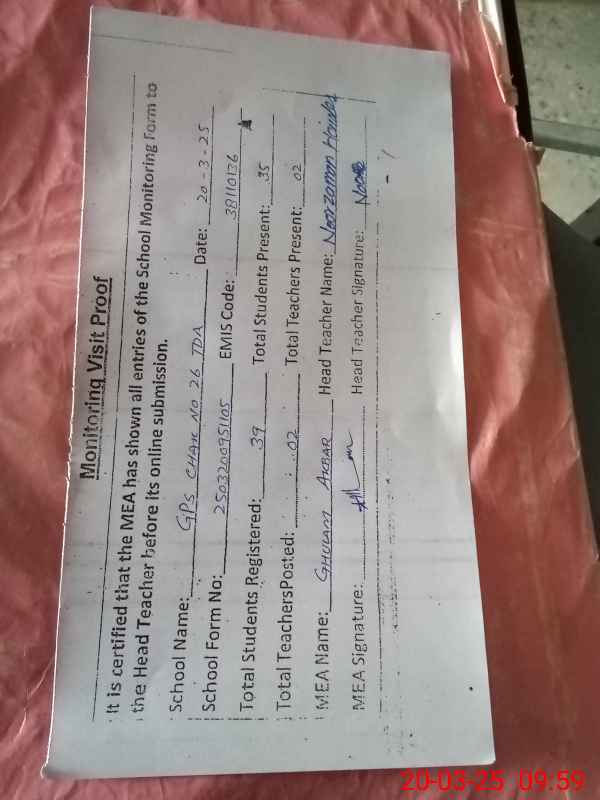 Monitoring Visit Proof
It is certified that the MEA has shown all entries of the School Monitoring Form to
the Head Teacher before its online submission.
School Name: GPS CHAK NO 26 TDA Date: 20-3-25
School Form No: 2503200951105 EMIS Code: 38110136
Total Students Registered: 39 Total Students Present: 35
Total TeachersPosted: 02 Total Teachers Present: 02
MEA Name: GHULAM AKBAR Head Teacher Name: Noorzaman Haider
MEA Signature: Head Teacher Signature:
20-03-25 09:59